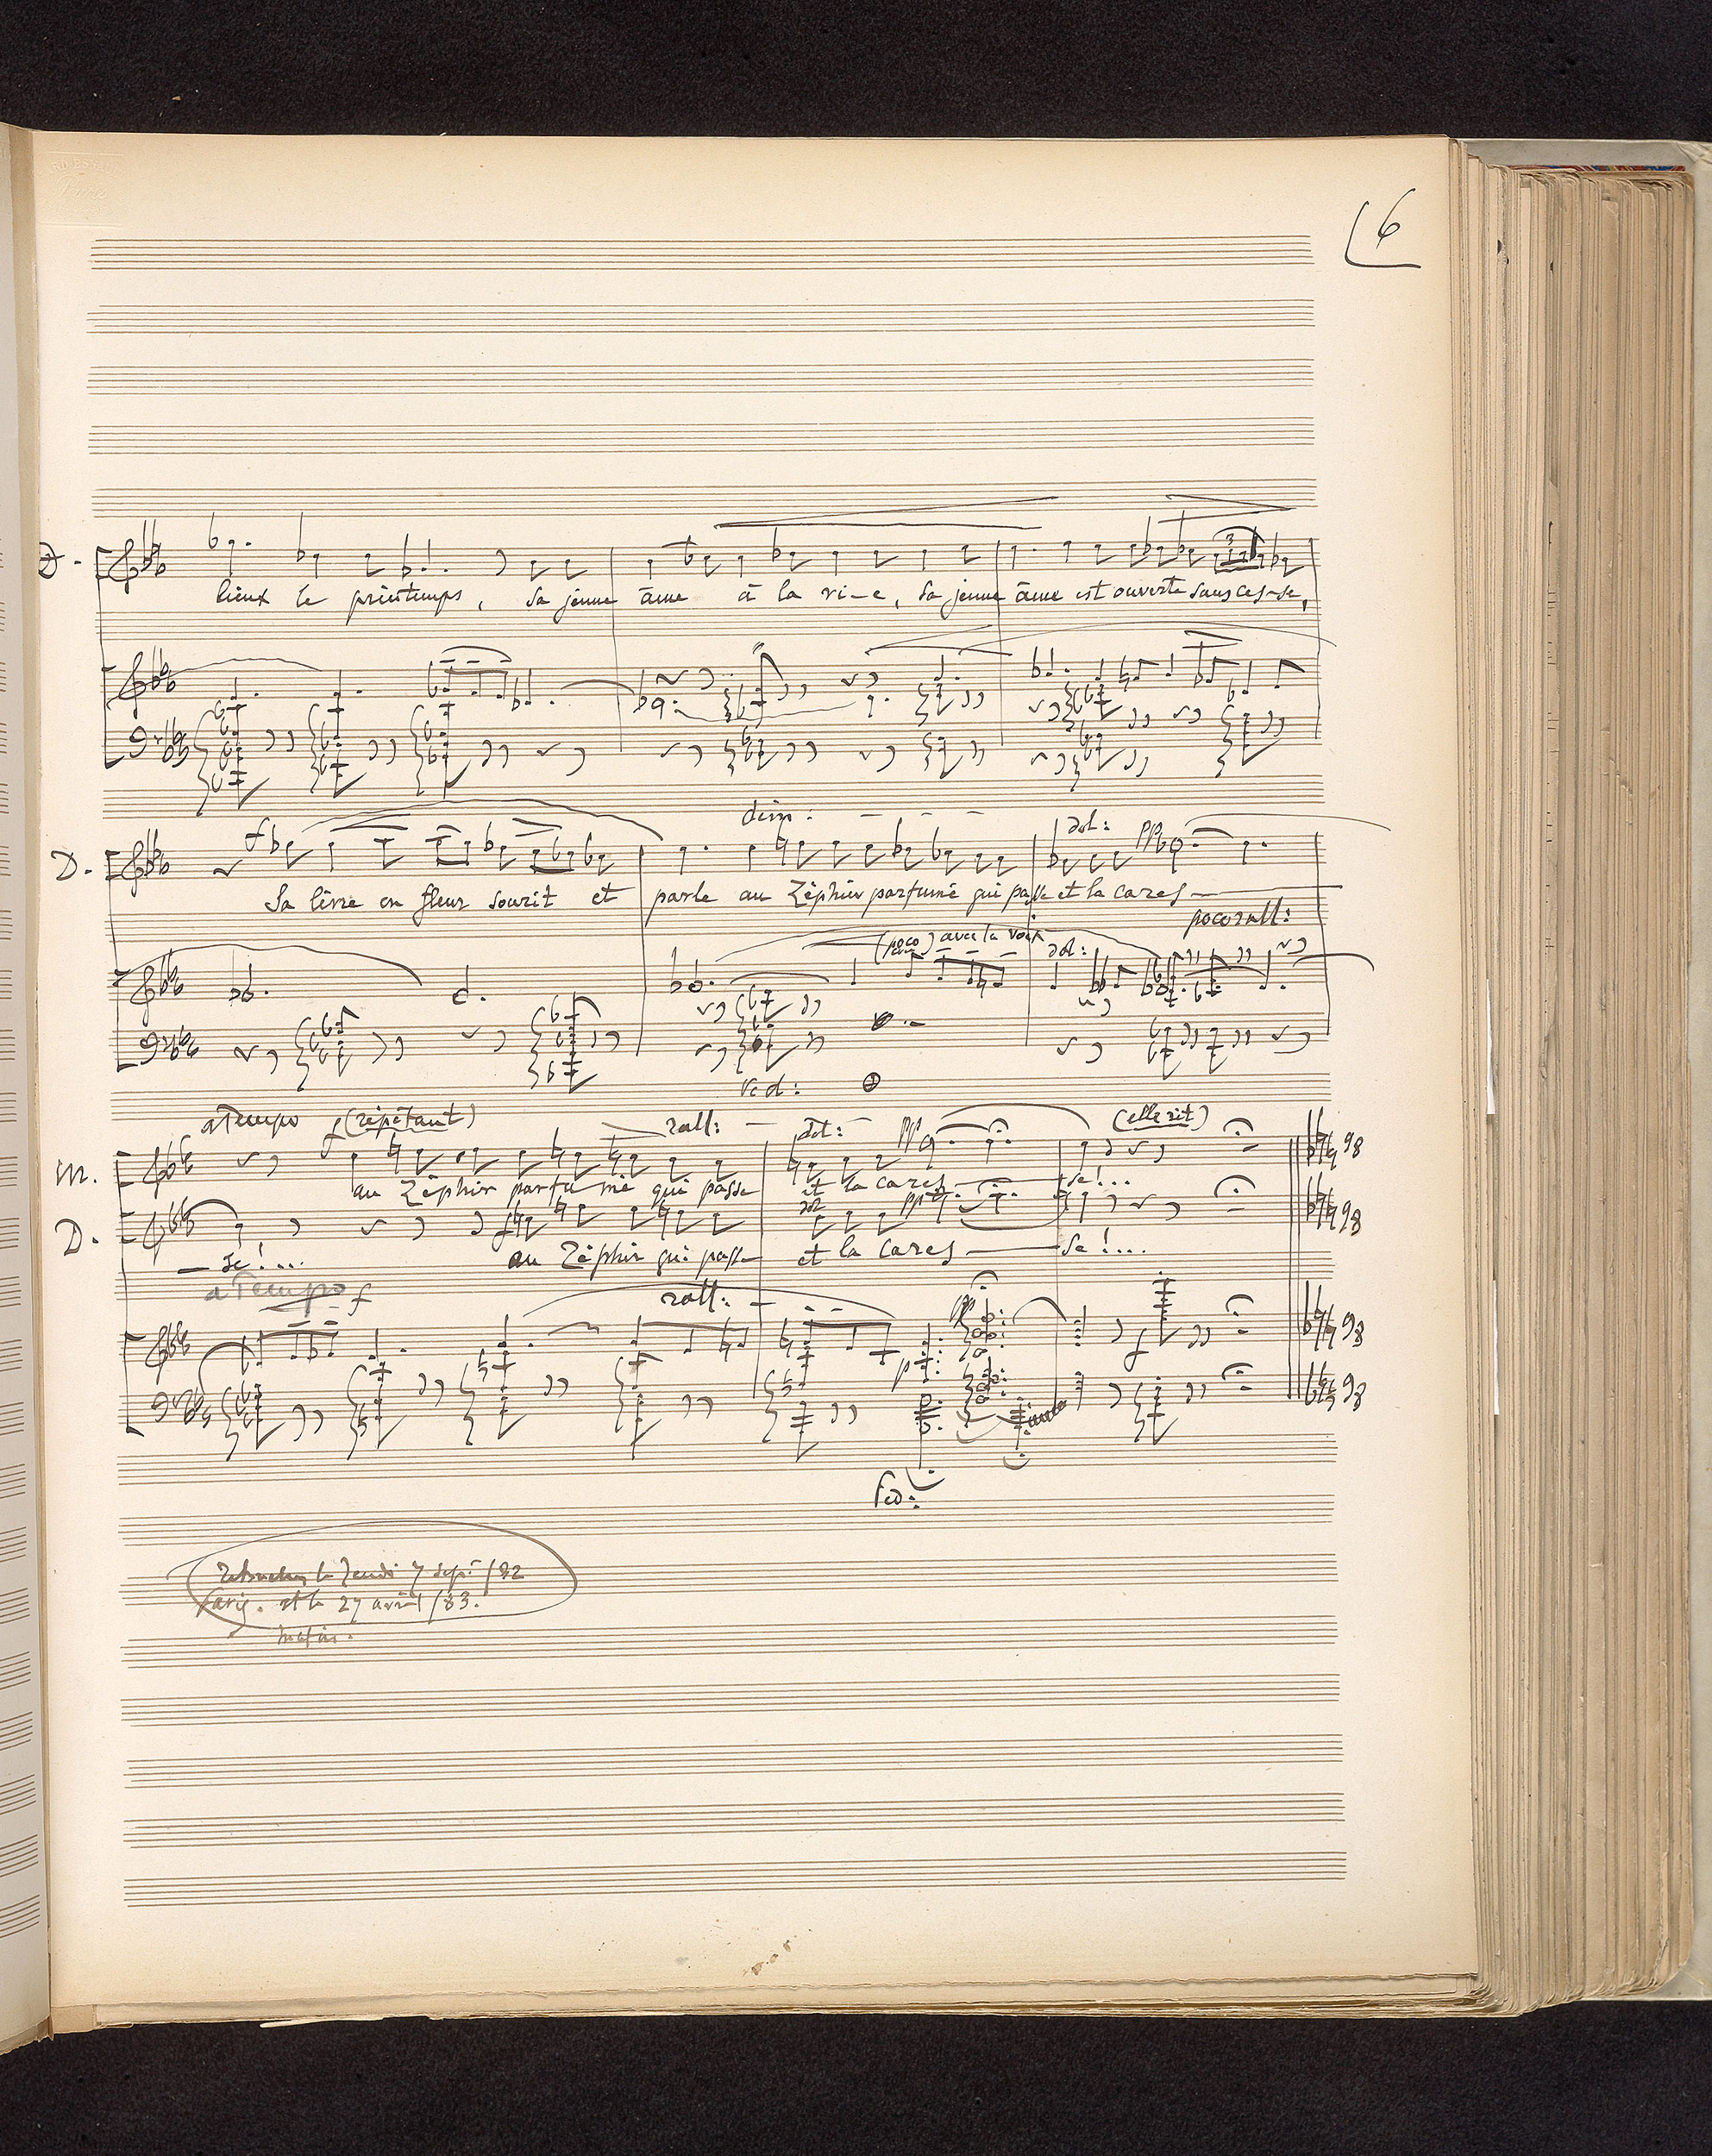 6
D.
lieux le printemps, Sa jeune âme à la vi-e, Sa jeune âme est ouverte sans ces-se,
3
dim:
dol:
f
pp
D.
Sa lèvre en fleur sourit et parle au Zéphir parfumé qui passe et la cares-
poco rall:
(poco) avec la voix
dol:
Ped:
a Tempo f (répétant)
rall:
dol:
pp
(elle rit)
M.
au Zéphir parfumé qui passe et la cares-se!...
9/8
dol
pp
D.
f
9/8
-se!... au Zéphir qui passe et la cares-se!...
a Tempo f
rall:
pp
p
f
9/8
9/8
Ped:
le Jeudi 7 sept /82
Paris. et le 27 avril /83.
matin.